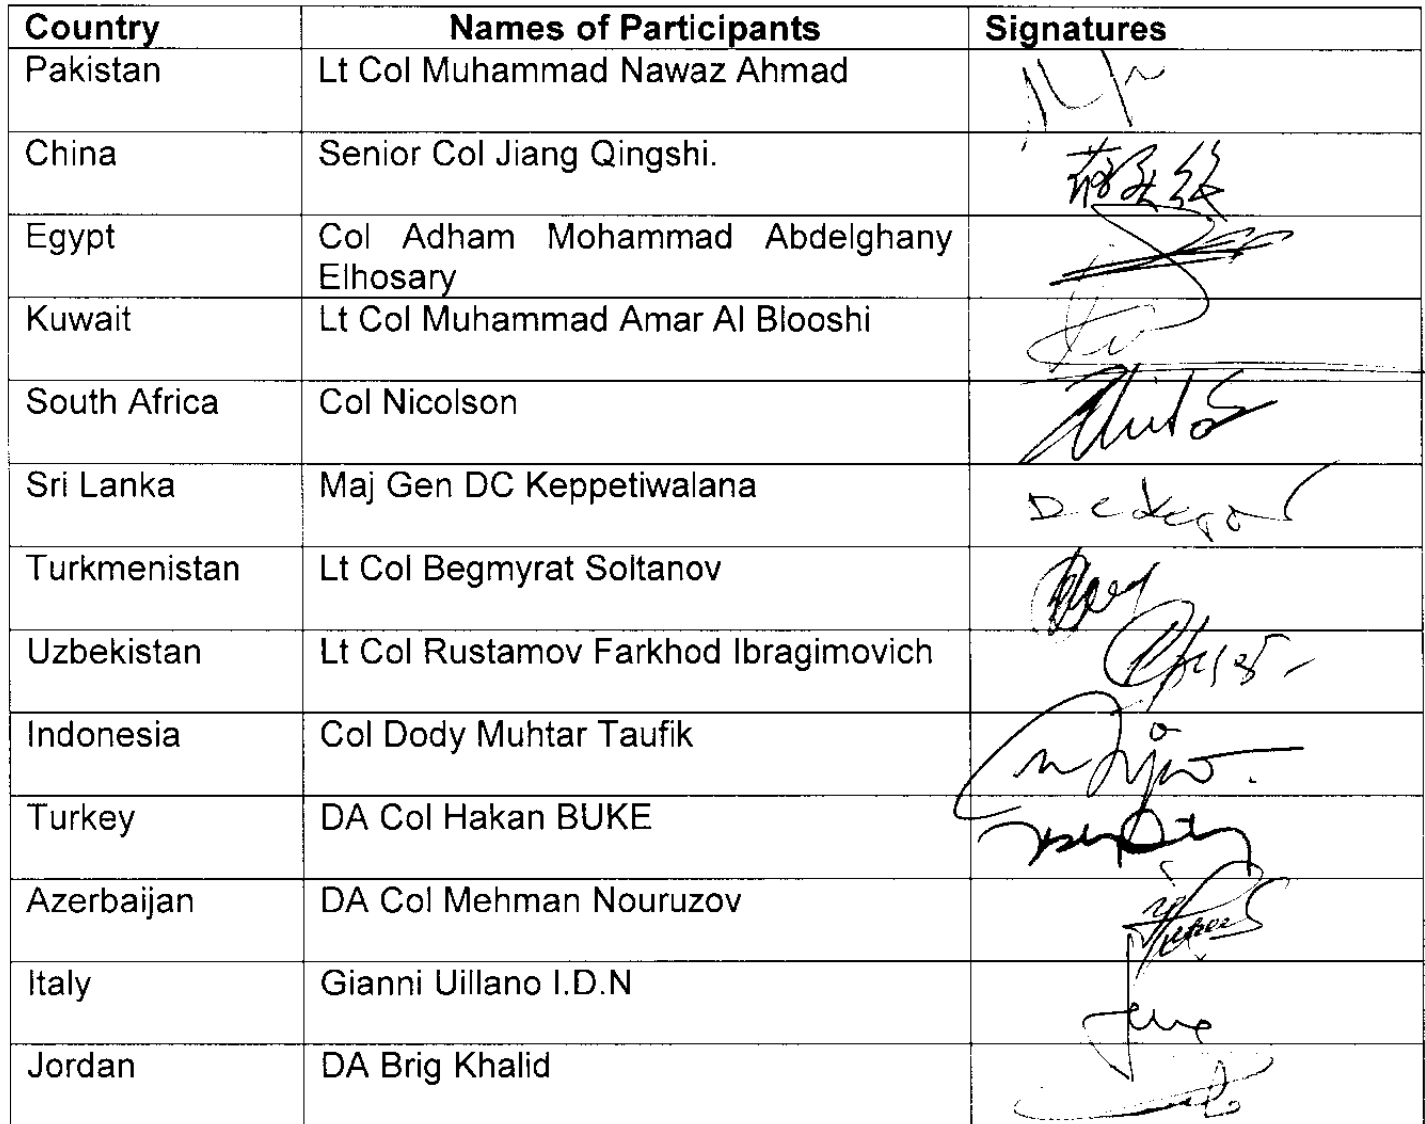 Country Names of Participants Signatures
Pakistan Lt Col Muhammad Nawaz Ahmad
China Senior Col Jiang Qingshi.
Egypt Col Adham Mohammad Abdelghany
Elhosary
Kuwait Lt Col Muhammad Amar Al Blooshi
South Africa Col Nicolson
Sri Lanka Maj Gen DC Keppetiwalana
Turkmenistan Lt Col Begmyrat Soltanov
Uzbekistan Lt Col Rustamov Farkhod Ibragimovich
Indonesia Col Dody Muhtar Taufik
Turkey DA Col Hakan BUKE
Azerbaijan DA Col Mehman Nouruzov
Italy Gianni Uillano I.D.N
Jordan DA Brig Khalid